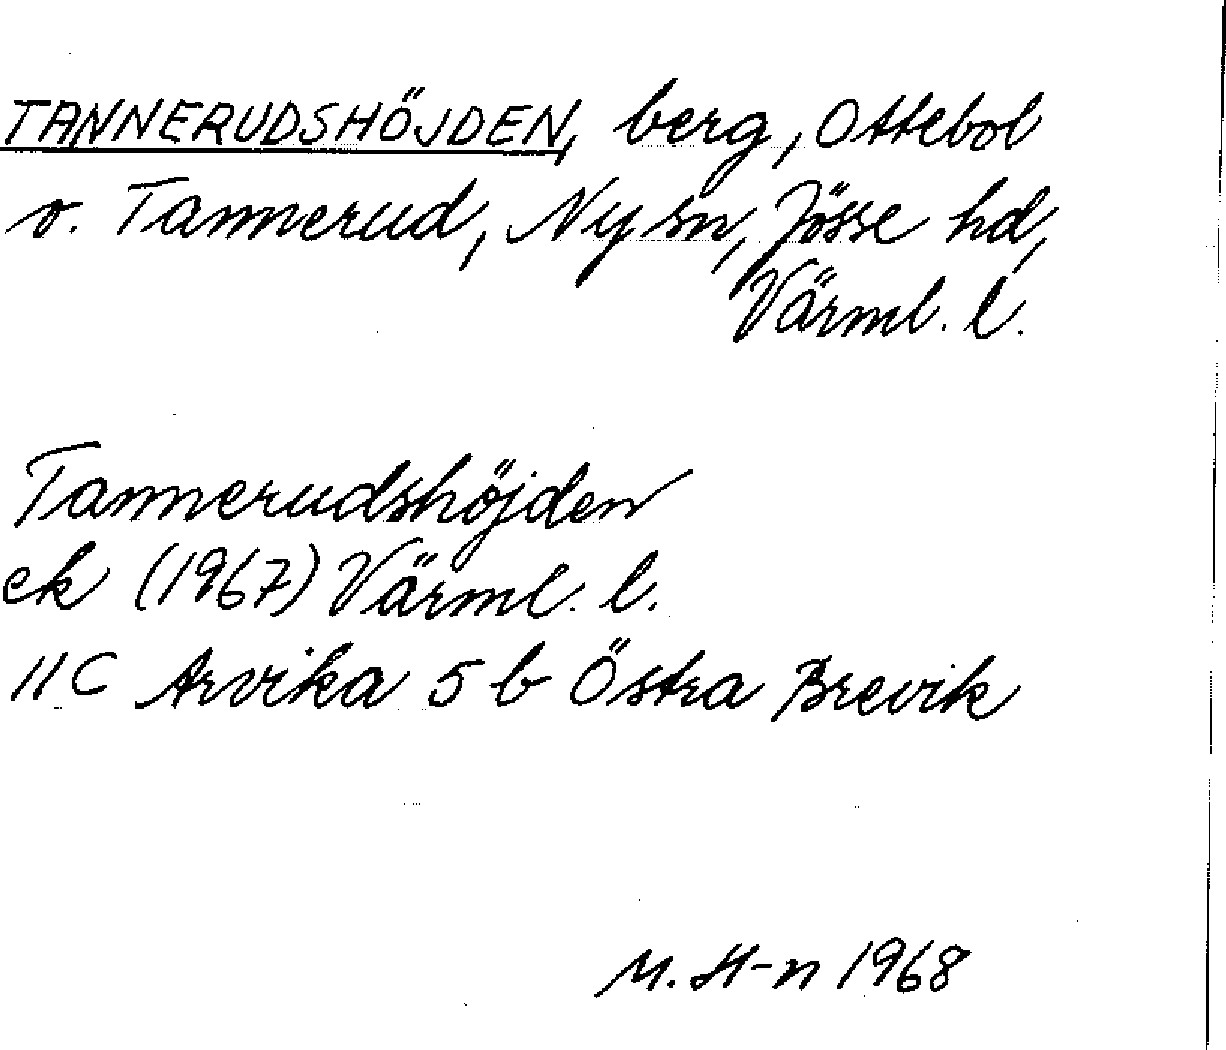 TANNERUDSHÖJDEN, berg, Ottebol
o. Tannerud, Ny sn, Jösse hd,
Värml. l.
Tannerudshöjden
ek (1967) Värml. l.
11C Arvika 5 b Östra Brevik
M. H-n 1968